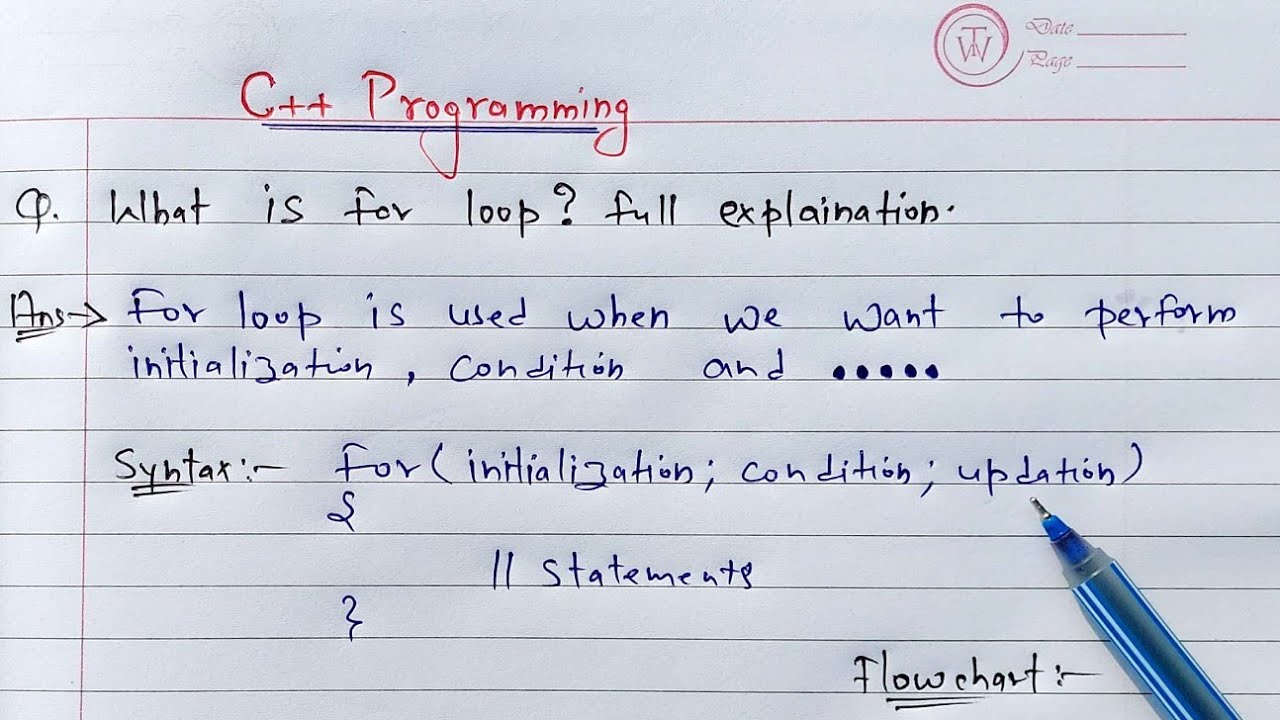 TW
Date
Page
C++ Programming
Q. What is for loop? full explaination.
Ans→ For loop is used when we want to perform
initialization, condition and •••••
Syntax:- For(initialization; condition; updation)
{
// Statements
}
Flowchart:-